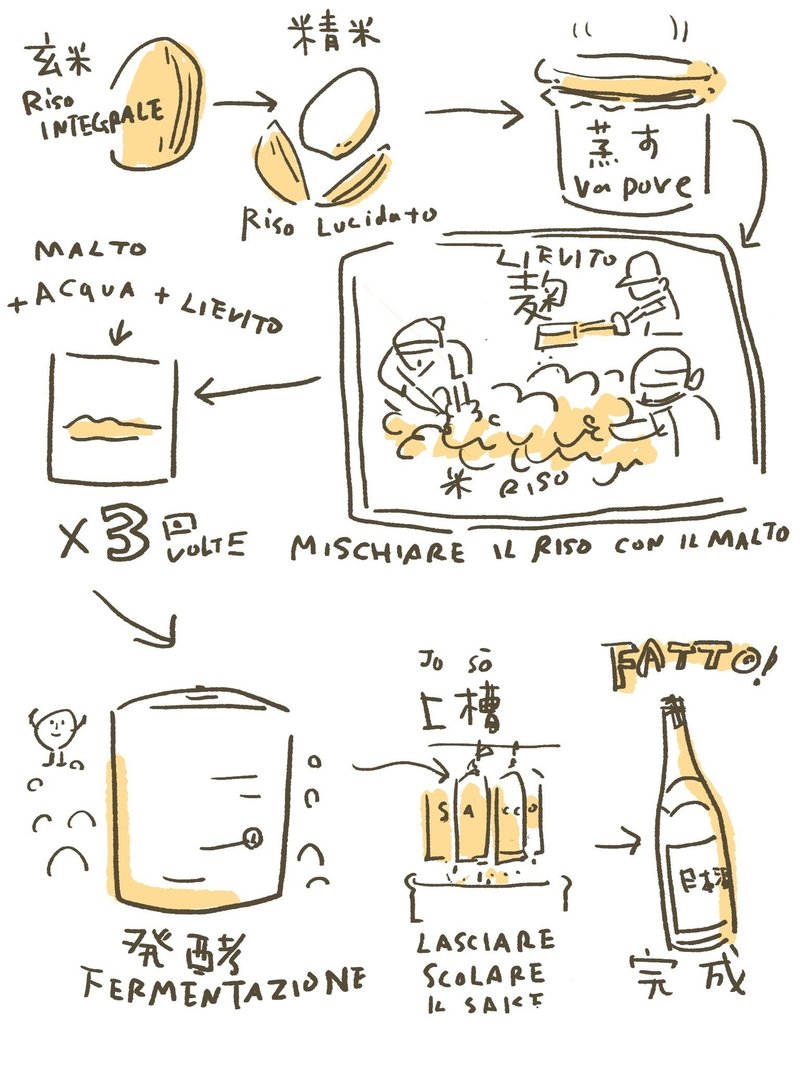 玄米
Riso
INTEGRALE
精米
Riso Lucidato
蒸す
Vapore
LIEVITO
麹
米 RISO
MISCHIARE IL RISO CON IL MALTO
MALTO
+ ACQUA + LIEVITO
x 3 回
VOLTE
発酵
FERMENTAZIONE
JO SŌ
上槽
SACCO
LASCIARE
SCOLARE
IL SAKE
FATTO!
日本酒
完成